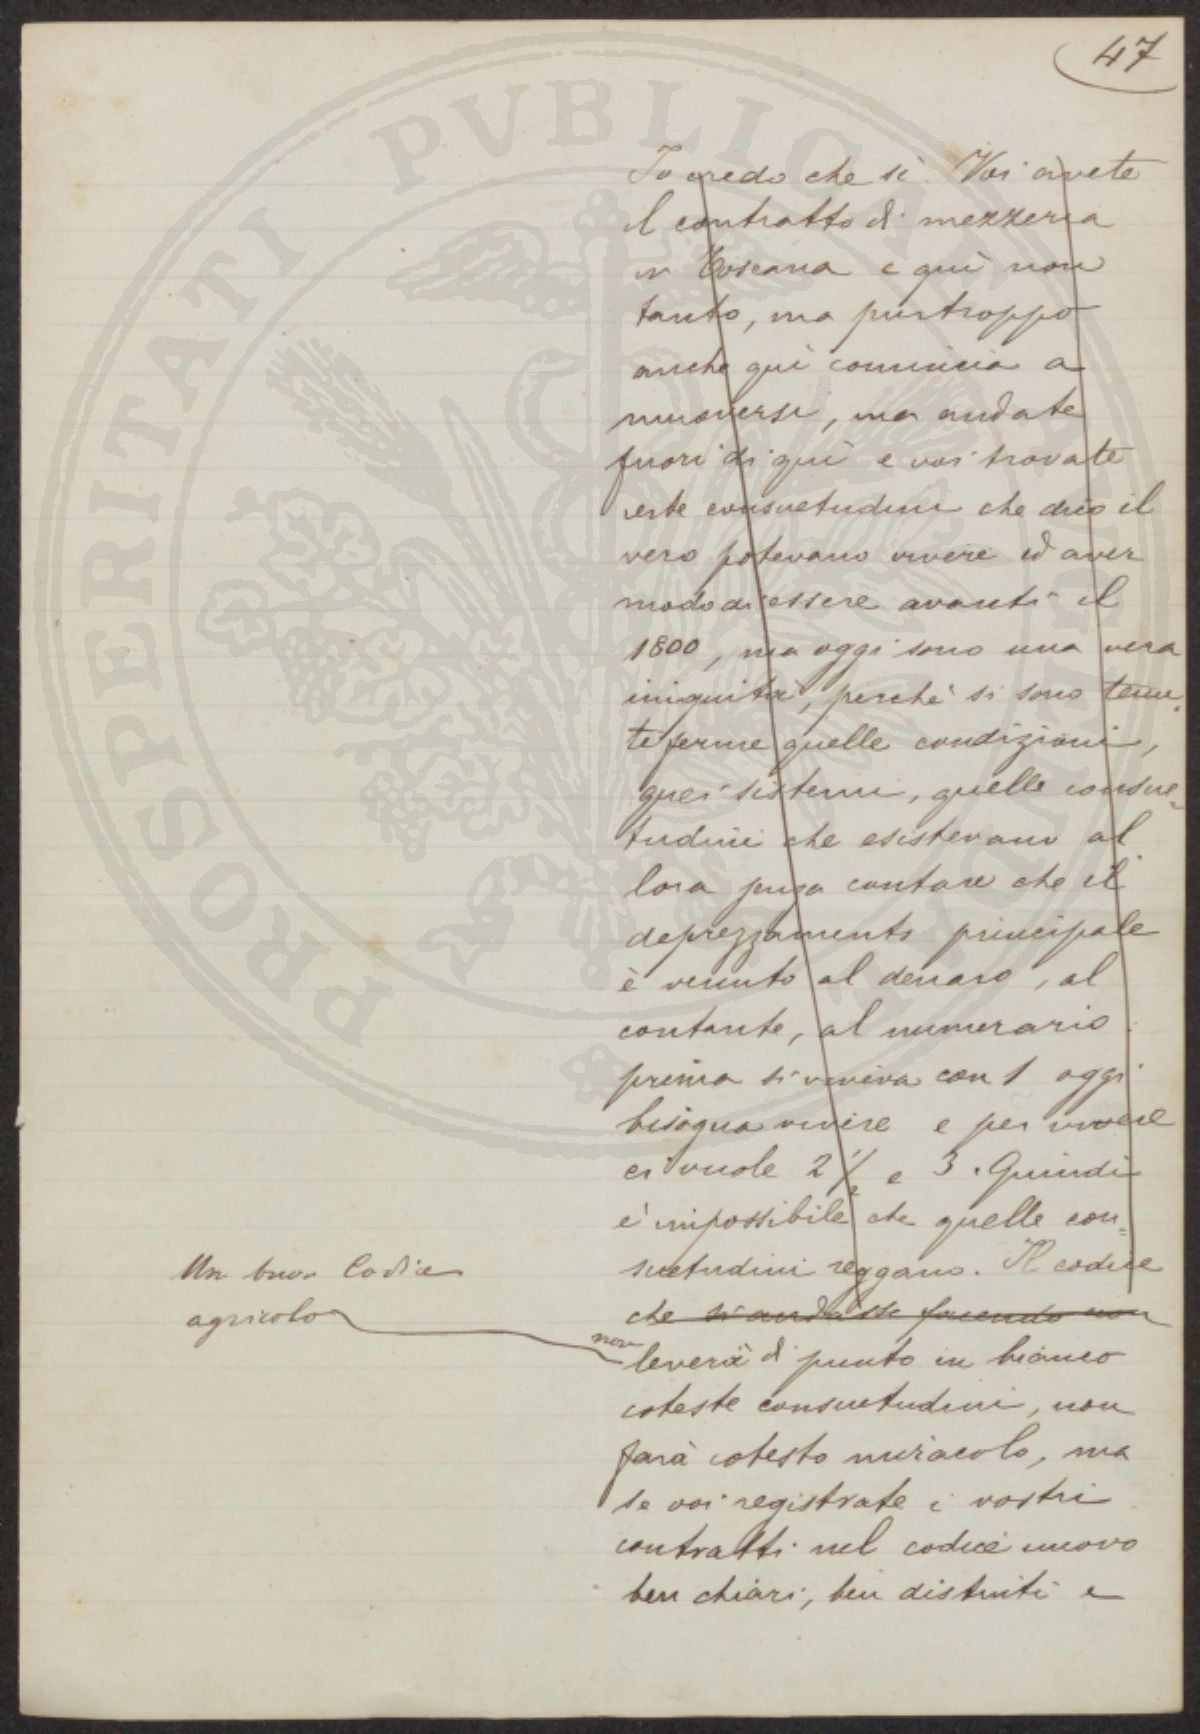 47
Io credo che sì. Voi avete
il contratto di mezzeria
in Toscana e quì non
tanto, ma purtroppo
anche quì comincia a
muoversi, ma andate
fuori di quì e voi trovate
certe consuetudini che dico il
vero potevano vivere ed aver
modo di essere avanti il
1800, ma oggi sono una vera
iniquità, perchè si sono tenu-
te ferme quelle condizioni,
quei sistemi, quelle consue-
tudini che esistevano al
lora senza contare che il
deprezzamento principale
è venuto al denaro, al
contante, al numerario.
prima si viveva con 1 oggi
bisogna vivere e per vivere
ci vuole 2 1/2 e 3. Quindi
è impossibile che quelle con=
suetudini reggano. Il codice
che si andasse facendo non
Un buon Codice
agricolo
non
leverà di punto in bianco
coteste consuetudini, non
farà cotesto miracolo, ma
se voi registrate i vostri
contratti nel codice nuovo
ben chiari, ben distinti e
PROSPERITATI PVBLICAE